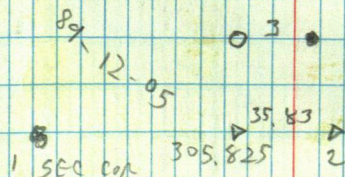 3
89-12-05
35.83
305.825
1 SEC COR 2